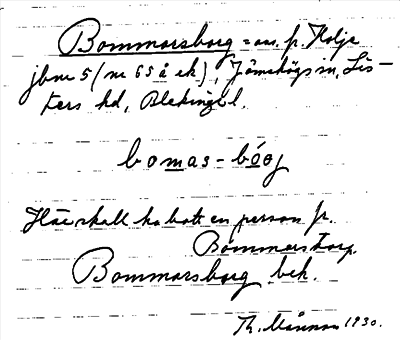 Bommarsborg = av. fr. Holje
jbnr 5 (nr 65 å ek), Jämshögs sn, Lis-
ters hd, Blekinge l.
bomas-bórj
Här skall ha bott en person fr.
Bommarstorp.
Bommarsborg bek.
Th. Månsson 1930.